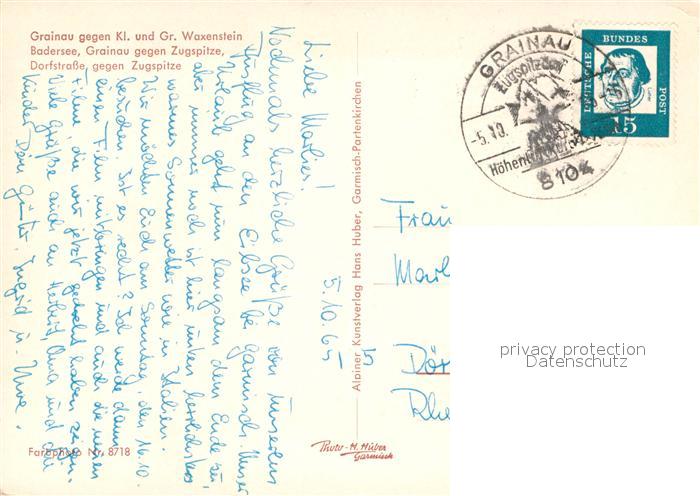 Grainau gegen Kl. und Gr. Waxenstein
Badersee, Grainau gegen Zugspitze,
Dorfstraße, gegen Zugspitze
5.10.65
Liebe Marlies!
Nochmals herzliche Grüße von unserem
Ausflug an den Eibsee bei Garmisch. Unser
Urlaub geht nun langsam dem Ende zu,
aber immer noch ist hier unten herrliches
warmes Sonnenwetter wie in Italien.
Wir möchten Euch am Sonntag, den 16.10.
besuchen. Ist es recht? Ich werde dann
einen Film mitbringen und auch die neuen
Filme, die wir jetzt gedreht haben zeigen.
Viele Grüße auch an Herbert, Oma und die
Kinder. Dein Günter, Ingrid u. Uwe.
Farbphoto Nr. 8718
Alpiner Kunstverlag Hans Huber, Garmisch-Partenkirchen
Photo-H. Huber
Garmisch
GRAINAU
Zugspitzdorf
-5.10.
8104
DEUTSCHE
BUNDES
POST
15
Frau
Marl
5
Dör
Rhe
privacy protection
Datenschutz